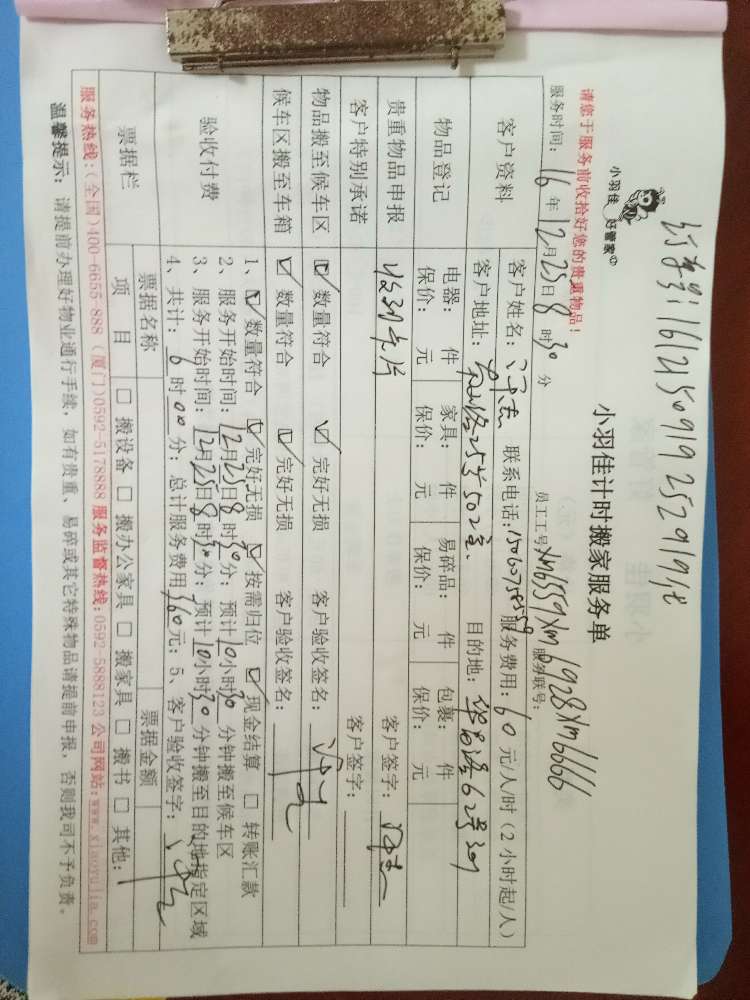 订单号:16121509192529191地
小羽佳 好管家
小羽佳计时搬家服务单
请您于服务前收拾好您的贵重物品!
员工工号xm6559xm6928xm6666
服务时间: 16年12月25日8时30分
服务联号:
客户资料
客户姓名: 联系电话:15060758559 服务费用: 60元/人/时(2小时起/人)
客户地址: 25号502室. 目的地: 62号301
物品登记
电器: 件 家具: 件 易碎品: 件 包裹: 件
保价: 元 保价: 元 保价: 元 保价: 元
贵重物品申报
客户签字:
客户特别承诺
客户签字:
物品搬至候车区 ☑ 数量符合 ☑ 完好无损 客户验收签名:
候车区搬至车箱 ☑ 数量符合 ☑ 完好无损 客户验收签名:
验收付费
1、☑ 数量符合 ☑ 完好无损 ☑ 按需归位 ☑ 现金结算 □ 转账汇款
2、服务开始时间: 12月25日8时30分; 预计10小时30分钟搬至候车区
3、服务开始时间: 12月25日8时30分; 预计10小时30分钟搬至目的地指定区域
4、共计: 6时00分; 总计服务费用360元; 5、客户验收签字:
票据栏
票据名称 票据金额
项目 □ 搬设备 □ 搬办公家具 □ 搬家具 □ 搬书 □ 其他:
服务热线:(全国)400-6655-888 (厦门)0592-5178888 服务监督热线:0592-5888123 公司网站:www.xiaoyujia.com
温馨提示: 请提前办理好物业通行手续, 如有贵重、易碎或其它特殊物品请提前申报, 否则我司不予负责。